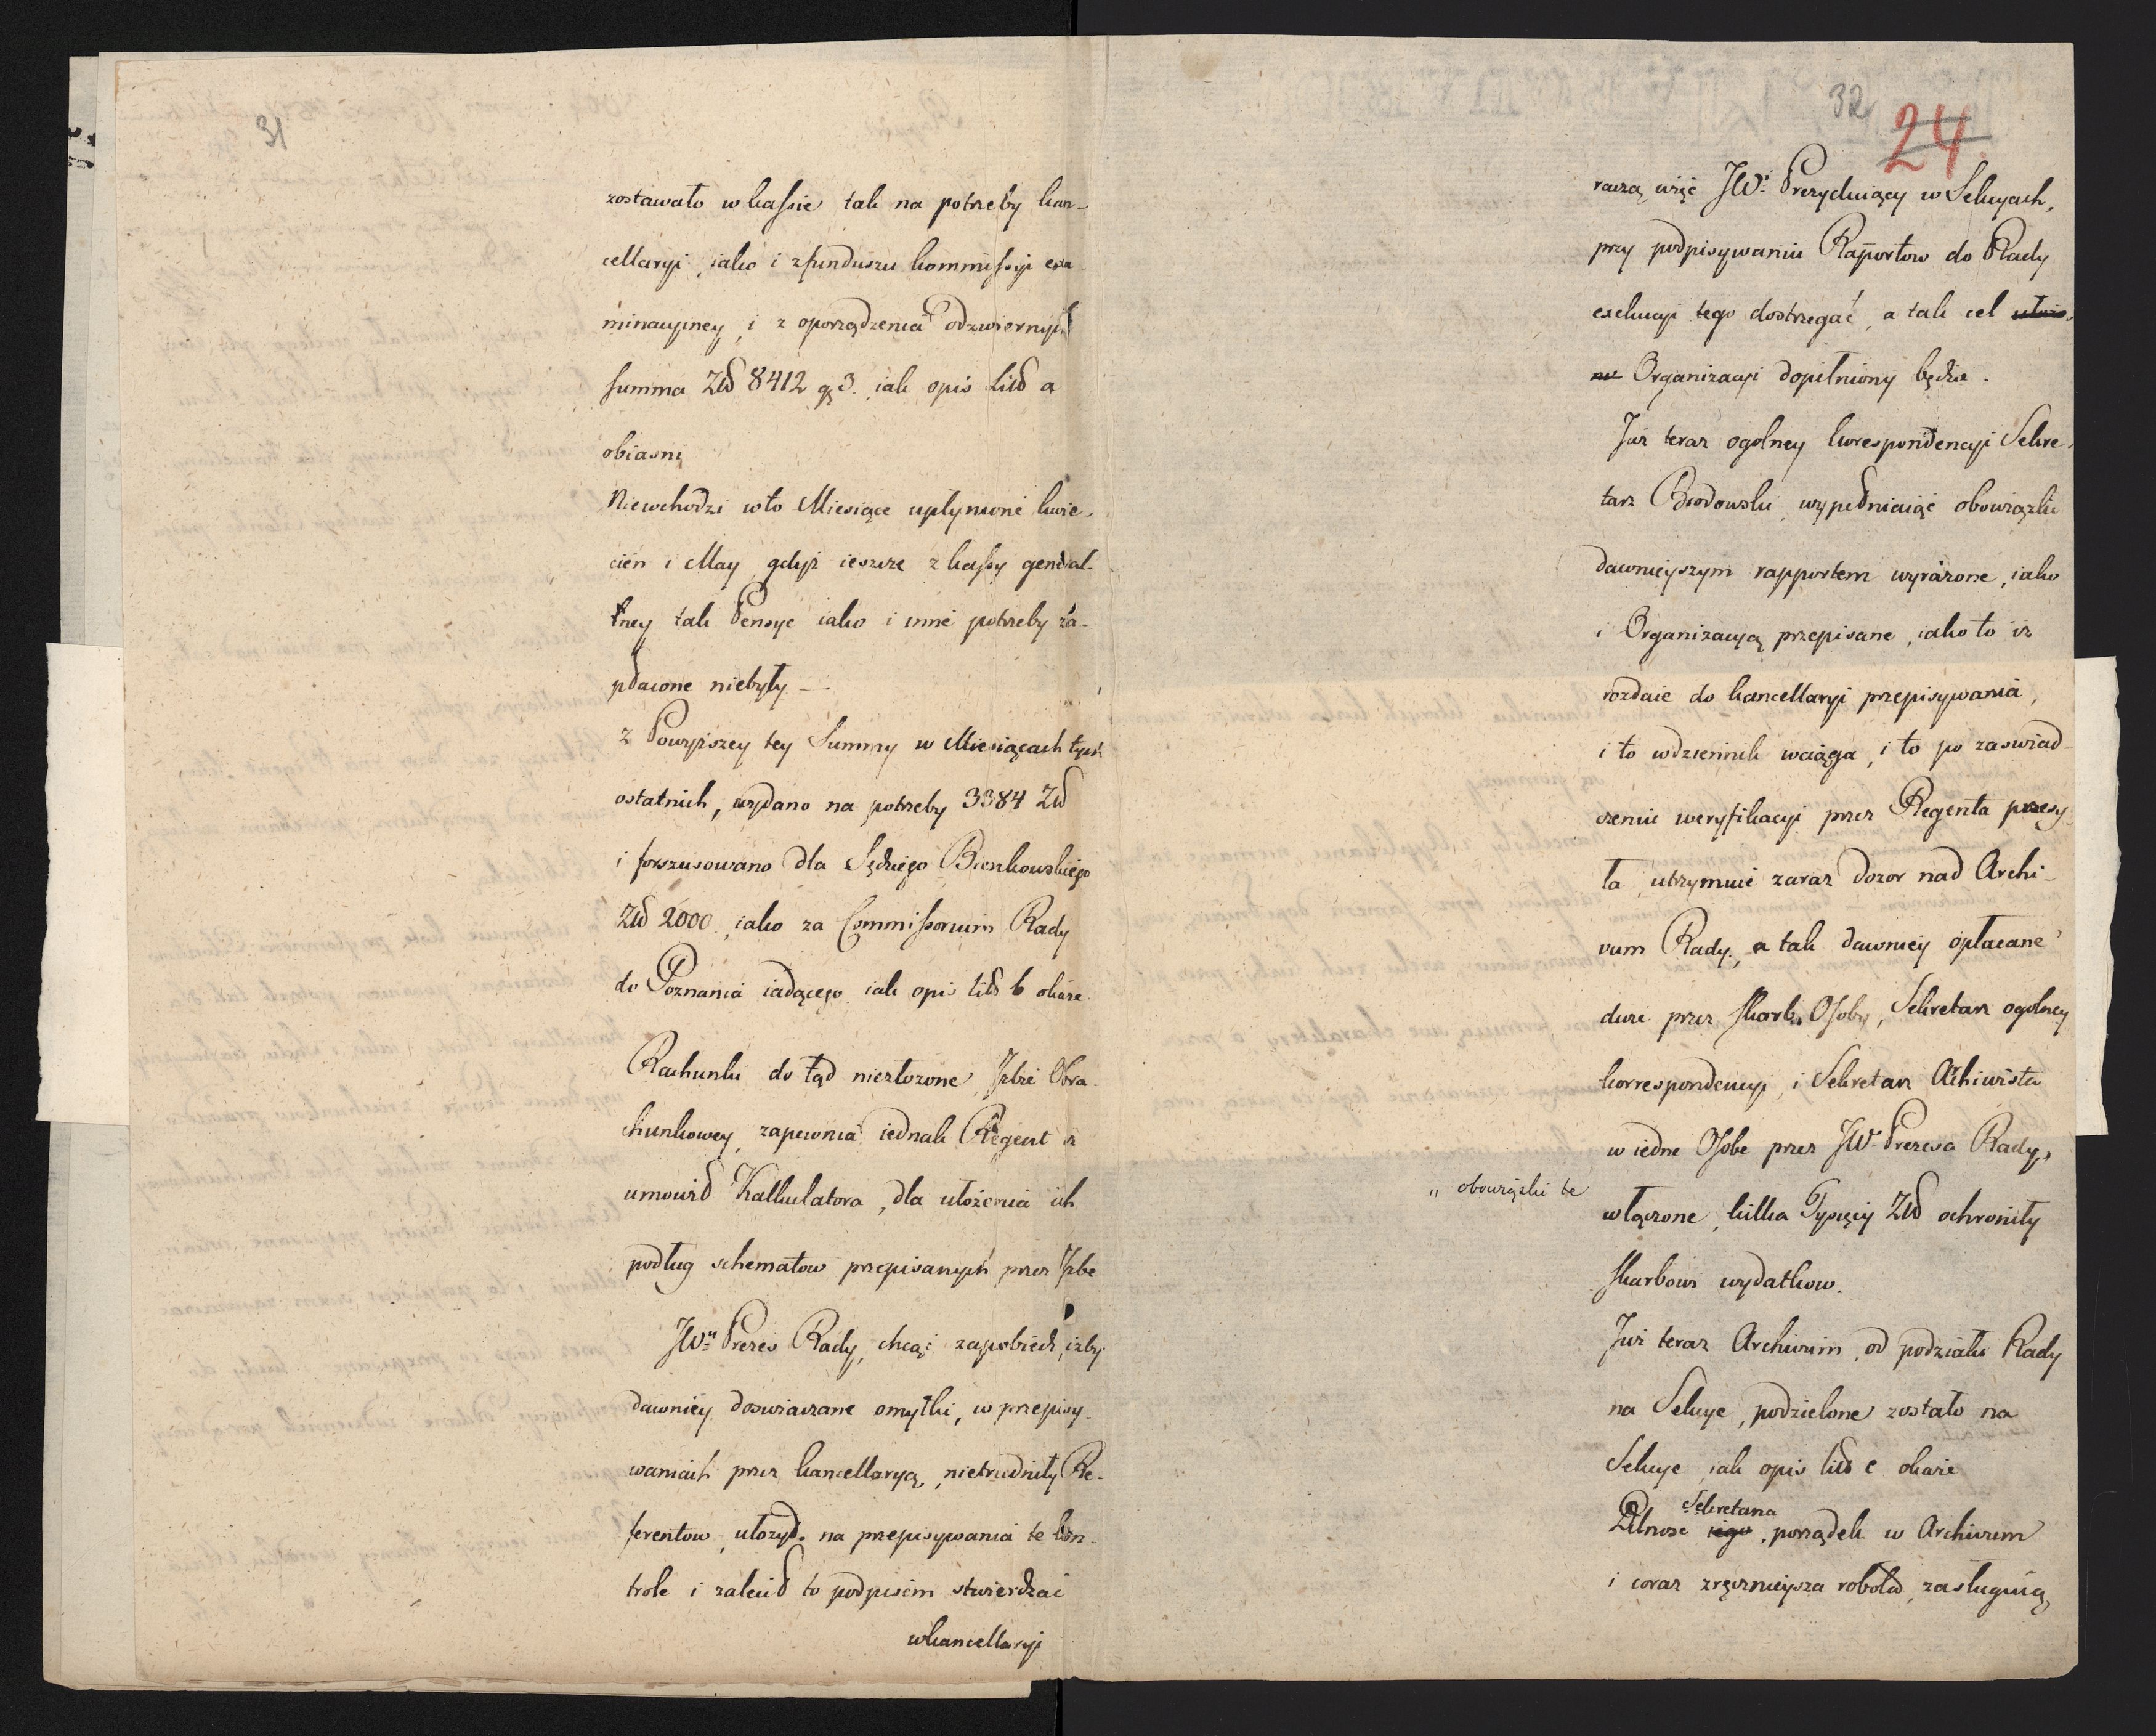 31
zostawało w kassie tak na potrzeby kan-
cellaryi, iako i z funduszu kommissyi exa
minacyiney, i z oporządzenia odzwiernych
summa Złł 8412 g 3. iak opis Litt a
obiasni
Niewchodzi w to Miesiące upłynione kwie-
cień i May, gdyż ieszcze z kassy general-
ney tak Pensye iako i inne potrzeby za-
płacone niebyły -.
z Powyższey tey Summy w Miesiącach tych
ostatnich, wydano na potrzeby 3384 Złł
i forszusowano dla Sędziego Bienkowskiego
Złł 2000. iako za Commissorium Rady
do Poznania iadącego iak opis litt b okaze.
Rachunki do tąd niezłozone Izbie Obra-
chunkowey, zapewnia iednak Regent iz
umowił Kalkulatora, dla ułożenia ich
podług schematow przepisanych przez Izbe
JWny Prezes Rady, chcąc zapobiedz, izby
dawniey doswiaczane omyłki, w przepisy-
waniach przez kancellaryą, nietrudniły Re-
ferentow, ułozył na przepisywania te kon-
trole i zalecił to podpisem stwierdzać
w kancellaryi
32
24
raczą więc JWi Prezyduiący w Sekcyach,
przy podpisywaniu Rapportow do Rady
exekucyi tego dostrzegać, a tak cel
Organizacyi dopełniony będzie.
Już teraz ogolney korespondencyi Sekre-
tarz Brodowski wypełniaiąc obowiązki
dawnieyszym rapportem wyrażone, iako
i Organizacyą przepisane, iako to iz
rozdaie do kancellaryi przepisywania,
i to w dziennik wciąga, i to po zaswiad-
czeniu weryfikacyi przez Regenta przesy-
ła, utrzymuie zaraz dozor nad Archi-
vum Rady, a tak dawniey opłacane
dwie przez skarb Osoby, Sekretarz ogolney
korrespondencyi, i Sekretarz Archiwista
w iedne Osobe przez JW Prezesa Rady,
" obowiązki te
włączone, kilka Tysięcy Złł ochroniły
skarbowi wydatkow.
Już teraz Archivum, od podziału Rady
na Sekcye, podzielone zostało na
Sekcye iak opis litt c okaze
Sekretarza
Pilnosc iego, porządek w Archivum
i coraz zręcznieysza robota, zasługuią